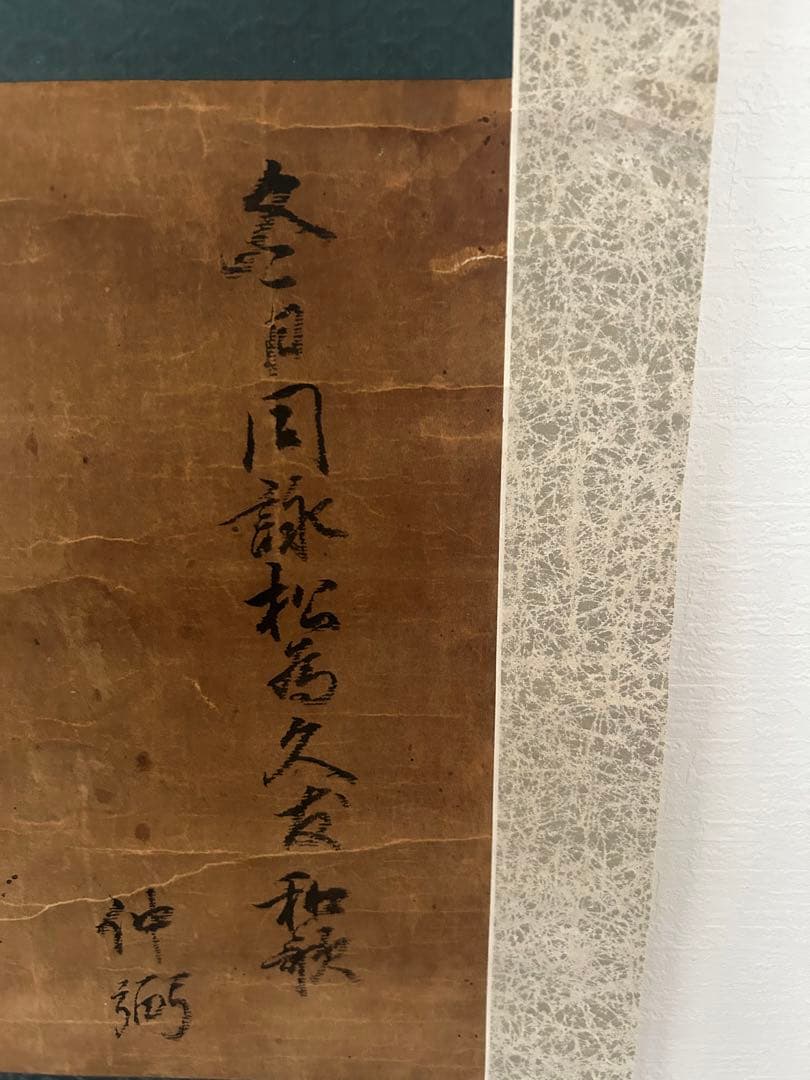 冬日同詠松為久友和歌
仲弼